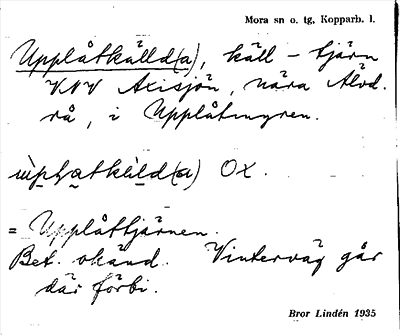 Mora sn o. tg, Kopparb. l.
Upplåtkälld(a), käll - tjärn
VNV Axisjön, nära Älvd.
rå, i Upplåtmyren.
OX.
= Upplåttjärnen.
Bet. okänd. Vinterväg går
där förbi.
Bror Lindén 1935